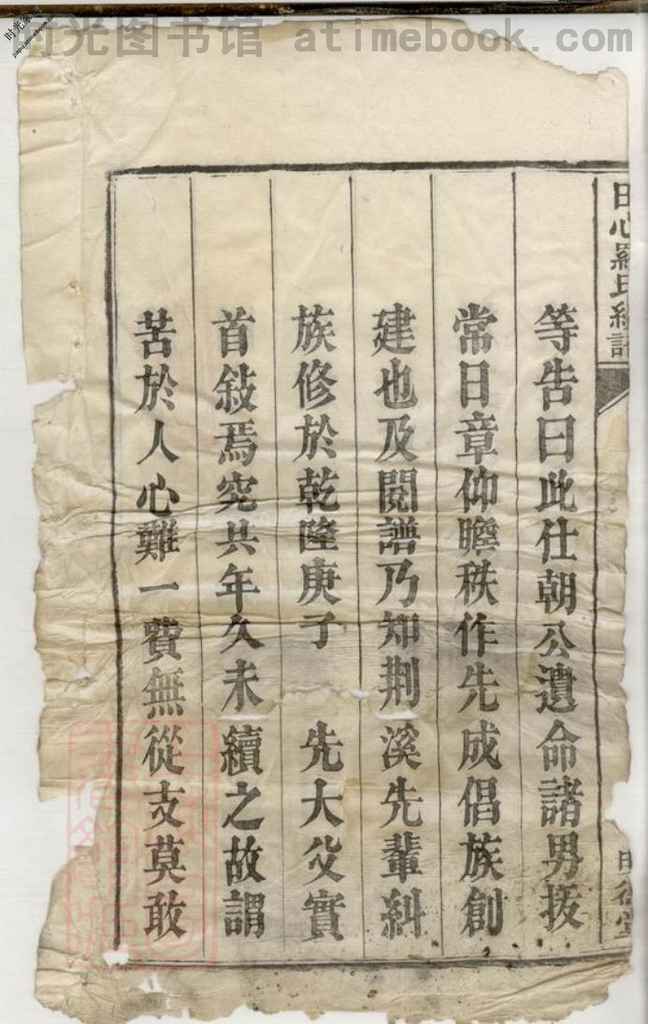 时光图书馆 atimebook.com
田心羅氏續譜
等告曰此仕朝公遺命諸男扳
常日章仰瞻秩作先成倡族創
建也及閱譜乃知荆溪先輩糾
族修於乾隆庚子 先大父實
首敍焉究其年久未續之故謂
苦於人心難一費無從支莫敢